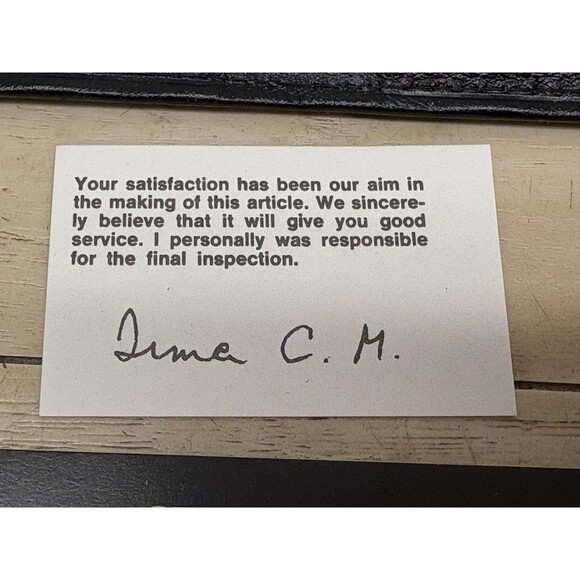 Your satisfaction has been our aim in
the making of this article. We sincere-
ly believe that it will give you good
service. I personally was responsible
for the final inspection.
Irma C. M.